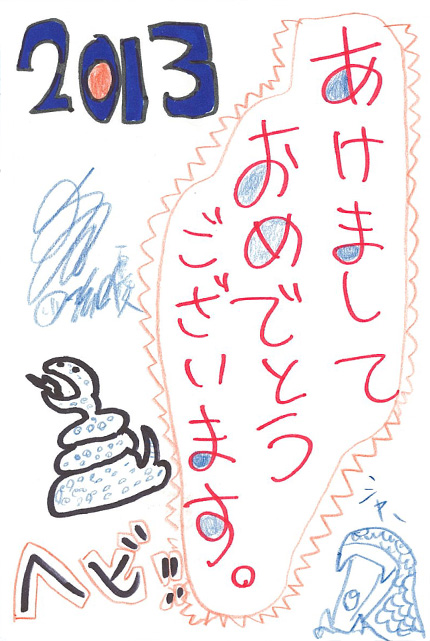 2013
あけまして
おめでとう
ございます。
ヘビ!!
シャー